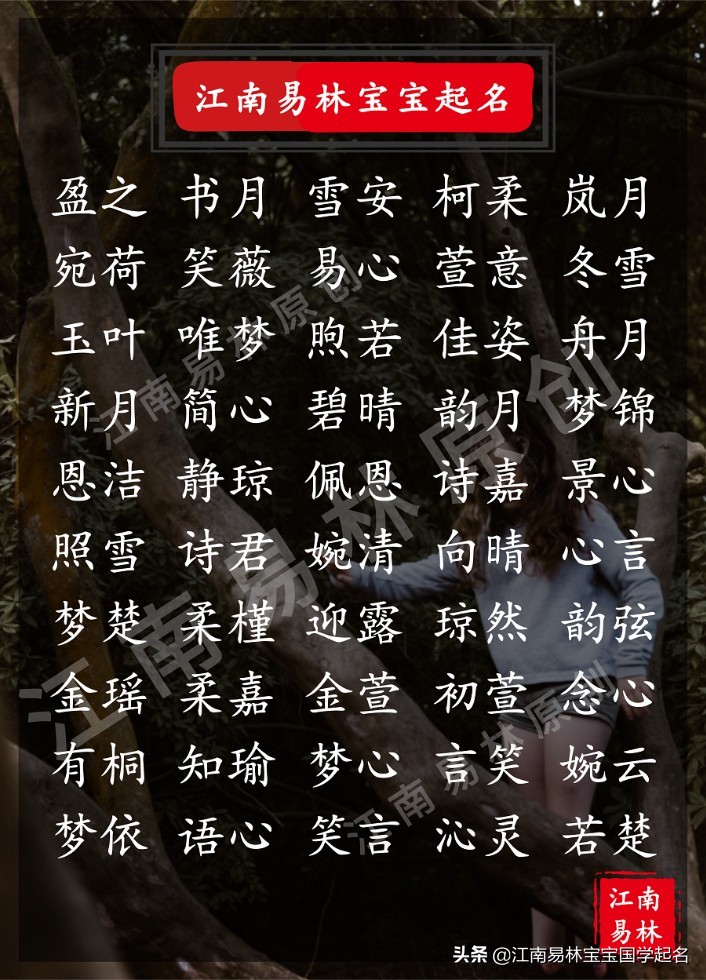 江南易林宝宝起名
盈之 书月 雪安 柯柔 岚月
宛荷 笑薇 易心 萱意 冬雪
玉叶 唯梦 煦若 佳姿 舟月
新月 简心 碧晴 韵月 梦锦
恩洁 静琼 佩恩 诗嘉 景心
照雪 诗君 婉清 向晴 心言
梦楚 柔槿 迎露 琼然 韵弦
金瑶 柔嘉 金萱 初萱 念心
有桐 知瑜 梦心 言笑 婉云
梦依 语心 笑言 沁灵 若楚
江南易林原创
江南易林原创
江南易林原创
江南
易林
头条 @江南易林宝宝国学起名